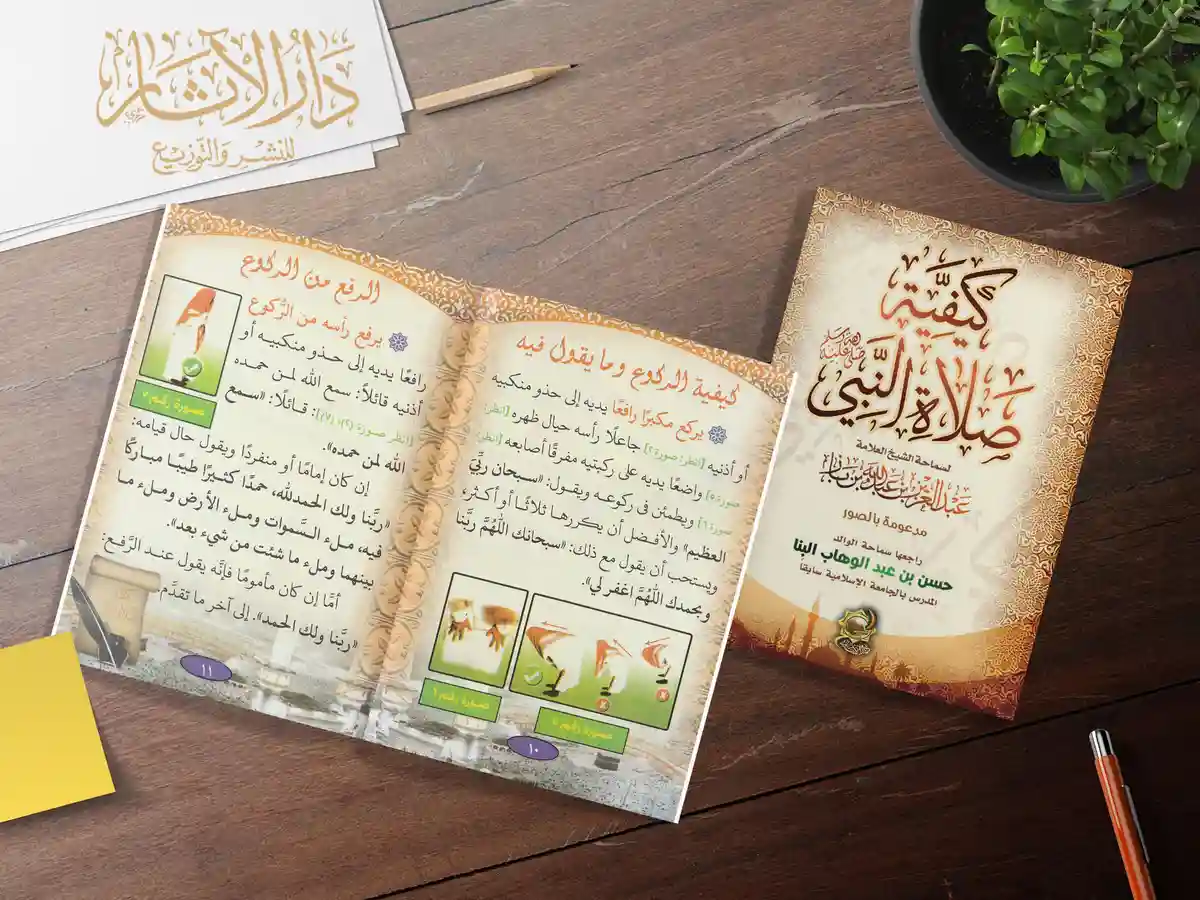 دَارُ الآثَار
للنَّشِر وَالتَّوزيْع
كيفية الركوع وما يقول فيه
يركع مكبرًا رافعًا يديه إلى حذو منكبيه
أو أذنيه [انظر: صورة ٢] جاعلًا رأسه حيال ظهره [انظر:
صورة ٥] واضعًا يديه على ركبتيه مفرقًا أصابعه [انظر:
صورة ٦] ويطمئن في ركوعه ويقول: «سبحان ربِّيَ
العظيم» والأفضل أن يكررها ثلاثًا أو أكثر،
ويستحب أن يقول مع ذلك: «سبحانك اللهُمَّ ربَّنا
وبحمدك اللهُمَّ اغفر لي».
صورة رقم ٥
صورة رقم ٦
١٠
الرفع من الركوع
يرفع رأسه من الرُّكوع
رافعًا يديه إلى حذو منكبيه أو
أذنيه قائلًا: سمع الله لمن حمده
[انظر صورة: (٢)، (٧)]: قائلًا: «سمع
الله لمن حمده».
إن كان إمامًا أو منفردًا ويقول حال قيامه:
«ربَّنا ولك الحمدلله، حمدًا كثيرًا طيبًا مباركًا
فيه، ملء السَّموات وملء الأرض وملء ما
بينهما وملء ما شئت من شيء بعد».
أمَّا إن كان مأمومًا فإنَّه يقول عند الرَّفع:
«ربَّنا ولك الحمد». إلى آخر ما تقدَّم.
صورة رقم ٧
١١
كَيْفِيَّة
صَلَاةِ النَّبِي
صلى الله عليه وسلم
لسماحة الشيخ العلامة
عبد العزيز بن عبد الله بن باز
مدعومة بالصور
راجعها سماحة الوالد
حسن بن عبد الوهاب البنا
المدرس بالجامعة الإسلامية سابقًا